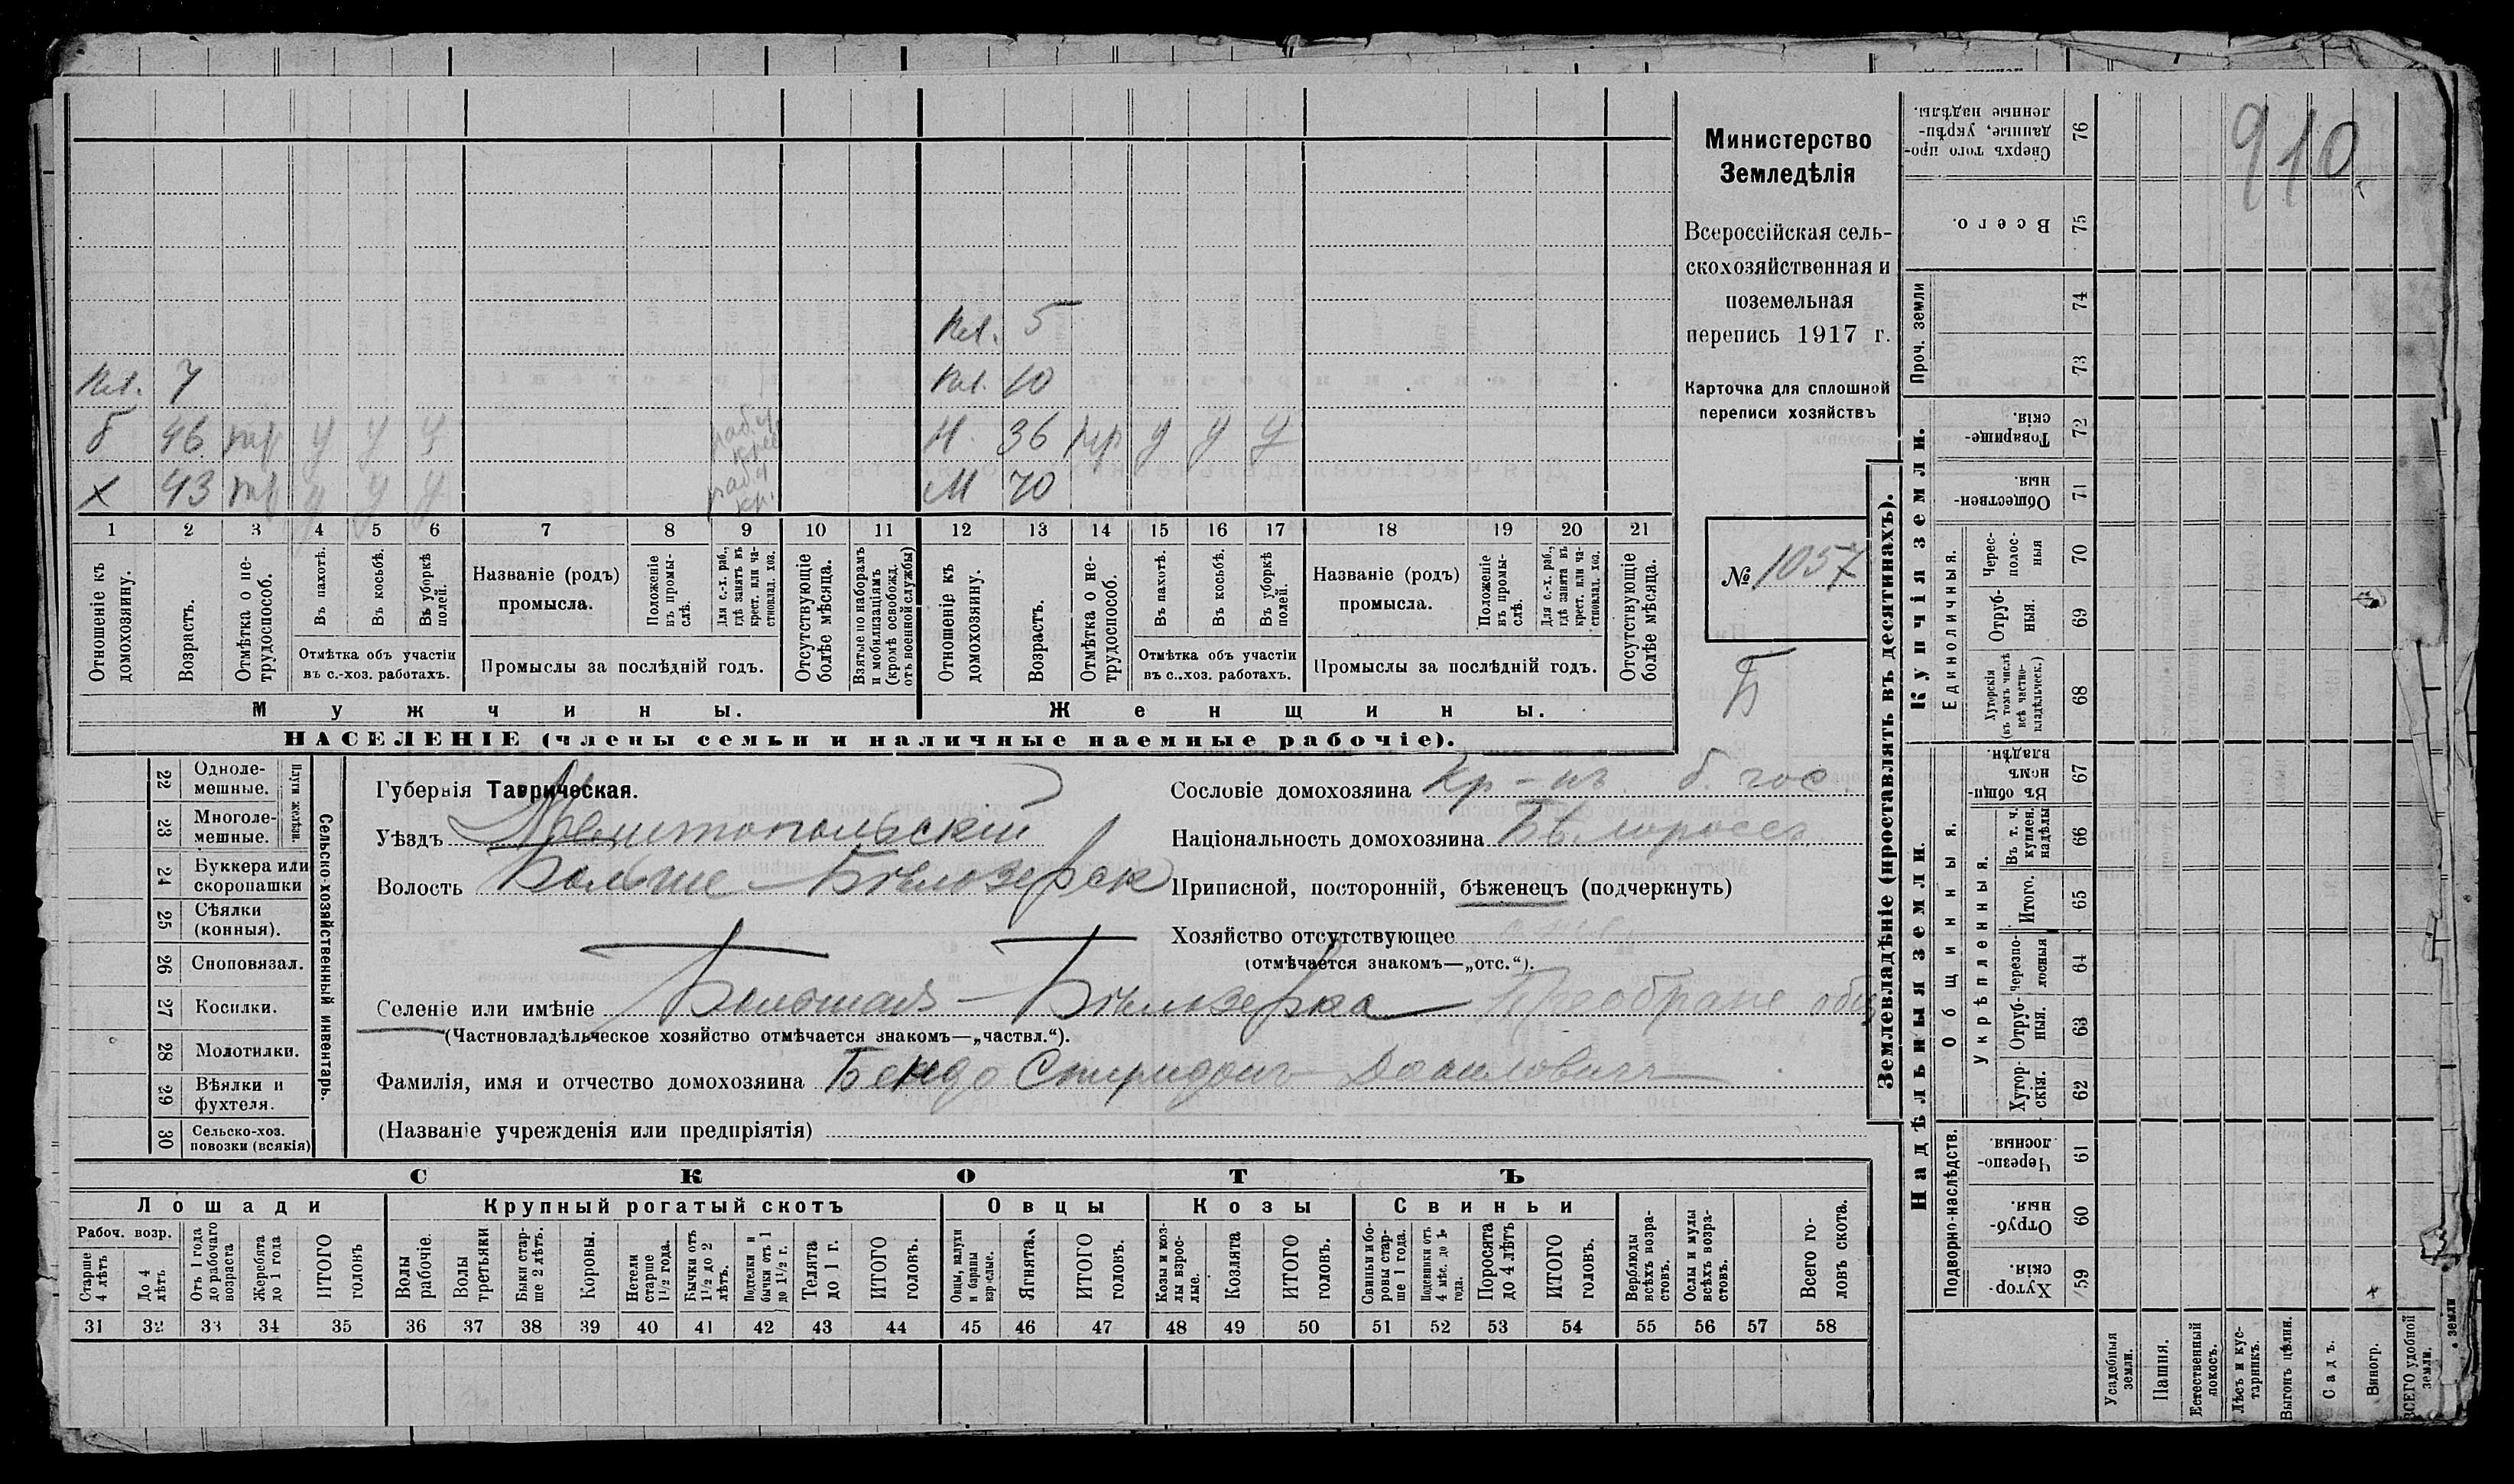 910
Министерство
Земледѣлія
Всероссійская сель-
скохозяйственная и
поземельная
перепись 1917 г.
Карточка для сплошной
переписи хозяйствъ
№ 1057
Б
Пл. 5
Пл. 7
Пл. 10
б 46 тр у у у раб. ч. крес
Н. 36 тр у у у
х 43 тр у у у раб ч кр.
М 70
1 2 3 4 5 6 7 8 9 10 11 12 13 14 15 16 17 18 19 20 21
Отношеніе къ домохозяину.
Возрастъ.
Отмѣтка о не-трудоспособ.
Въ пахотѣ.
Въ косьбѣ.
Въ уборкѣ полей.
Отмѣтка объ участіи
въ с.-хоз. работахъ.
Названіе (родъ)
промысла.
Положеніе въ промы-слѣ.
Для с.-х. раб., гдѣ занятъ въ крест. или ча-стновлад. хоз.
Промыслы за послѣдній годъ.
Отсутствующіе болѣе мѣсяца.
Взятые по наборамъ и мобилизаціямъ (кромѣ освобожд. отъ военной службы)
Отношеніе къ домохозяину.
Возрастъ.
Отмѣтка о не-трудоспособ.
Въ пахотѣ.
Въ косьбѣ.
Въ уборкѣ полей.
Отмѣтка объ участіи
въ с..хоз. работахъ.
Названіе (родъ)
промысла.
Положеніе въ промы-слѣ.
Для с.-х. раб., гдѣ занята въ крест. или ча-стновлад. хоз.
Промыслы за послѣдній годъ.
Отсутствующіе болѣе мѣсяца.
Мужчины.
Женщины.
НАСЕЛЕНІЕ (члены семьи и наличные наемные рабочіе).
22 Одноле-мешные.
23 Многоле-мешные.
24 Буккера или скоропашки
25 Сѣялки (конныя).
26 Сноповязал.
27 Косилки.
28 Молотилки.
29 Вѣялки и фухтеля.
30 Сельско-хоз. повозки (всякія)
Плуги желѣзн.
Сельско-хозяйственный инвентарь.
Губернія Таврическая.
Уѣздъ Мелитопольскій
Волость Больше-Бѣлозерск
Сословіе домохозяина кр-нъ б. гос.
Національность домохозяина Бѣлоросс
Приписной, посторонній, бѣженецъ (подчеркнуть)
Хозяйство отсутствующее
(отмѣчается знакомъ—„отс.“).
Селеніе или имѣніе Большая-Бѣлозерка Преображе общ
(Частновладѣльческое хозяйство отмѣчается знакомъ—„частвл.“).
Фамилія, имя и отчество домохозяина Бендо Спиридонъ
(Названіе учрежденія или предпріятія)
СКОТЪ
Лошади
Крупный рогатый скотъ
Овцы
Козы
Свиньи
Рабоч. возр.
Старше 4 лѣтъ
До 4 лѣтъ
Отъ 1 года до рабочаго возраста
Жеребята до 1 года
ИТОГО головъ
Волы рабочіе.
Волы третьяки
Быки стар-ше 2 лѣтъ.
Коровы.
Нетели старше 1½ года.
Бычки отъ 1½ до 2 лѣтъ.
Подтелки и бычки отъ 1 до 1½ г.
Телята до 1 г.
ИТОГО головъ.
Овцы, валухи и бараны взрослые.
Ягнята.
ИТОГО головъ.
Козы и коз-лы взрос-лые.
Козлята
ИТОГО головъ.
Свиньи и бо-ровы стар-ше 1 года.
Подсвинки отъ 4 мѣс. до 1 года.
Поросята до 4 лѣтъ
ИТОГО головъ.
Верблюды всѣхъ возра-стовъ.
Ослы и мулы всѣхъ возра-стовъ.
Всего го-ловъ скота.
31 32 33 34 35 36 37 38 39 40 41 42 43 44 45 46 47 48 49 50 51 52 53 54 55 56 57 58
Землевладѣніе (проставлять въ десятинахъ).
Купчія земли.
Надѣльныя земли.
Проч. земли
Единоличныя.
Общинныя.
Укрѣпленныя.
Подворно-наслѣдств.
Сверхъ того про-данные, укрѣп-ленные надѣлы. 76
Всего. 75
74
73
Товарище-скія. 72
Обществен-ныя. 71
Черес-полос-ныя 70
Отруб-ныя. 69
Хуторскія (въ томъ числѣ всѣ частно-владѣльческ.) 68
Въ общи-номъ владѣн. 67
Въ т. ч. куплен. надѣлы 66
Итого. 65
Черезпо-лосныя 64
Отруб-ныя. 63
Хутор-скія. 62
Черезпо-лосныя. 61
Отруб-ныя. 60
Хутор-скія. 59
Усадебныя земли.
Пашня.
Естественный покосъ.
Лѣсъ и кус-тарникъ.
Выгонъ цѣлин.
Садъ.
Виногр.
ВСЕГО удобной земли.
земли